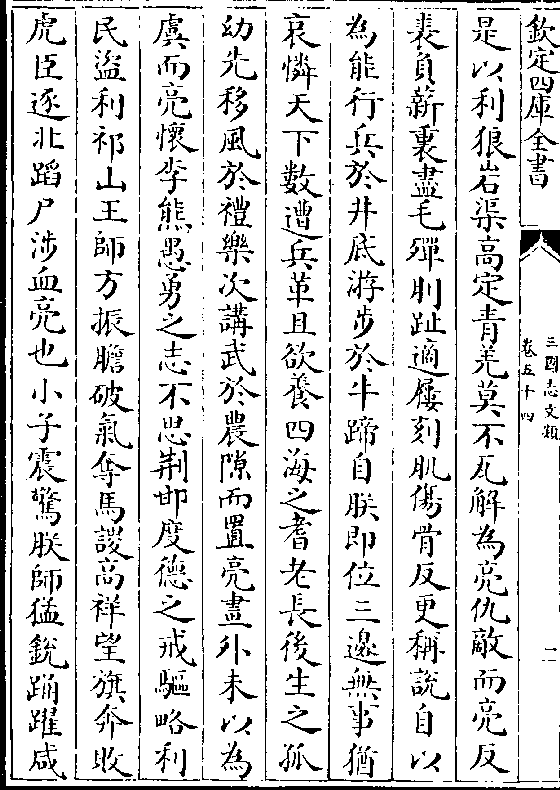 欽定四庫全書
三國志文類
卷五十四
二
是以利狼岩渠高定青羌莫不瓦解為亮仇敵而亮反
裘負薪裏盡毛殫刖趾適屨刻肌傷骨反更稱說自以
為能行兵於井底游步於牛蹄自朕即位三邊無事猶
哀憐天下數遭兵革且欲養四海之耆老長後生之孤
幼先移風於禮樂次講武於農隙而置亮畫外未以為
虞而亮懷李熊愚勇之志不思荆邯度德之戒驅略利
民盜利祁山王師方振膽破氣奪馬謖高祥望旗奔敗
虎臣逐北蹈尸涉血亮也小子震驚朕師猛銳踊躍咸